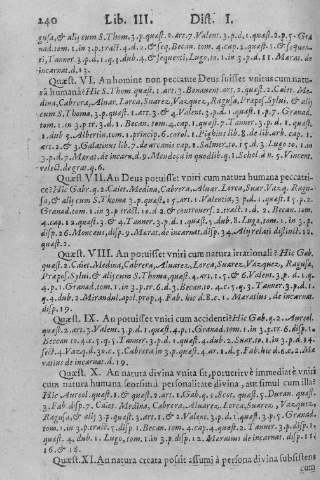 240 Lib. III. Dist. I.
gusa, & alij cum S. Thom. 3. p. quæst. 2. art. 7. Valent. 3. p. d. 1. quæst. 2. p. 5. Gra
nad. tom. 1. in 3. p. tract. 4. d. 2. & seq. Becan. tom. 4. cap. 2. quæst. 5. & sequen-
ti, Tanner. 3. p. d. 1. q. 1. dub. 4. & sequenti, Lugo, to. 1. in 3. p. d. 11. Marat. de
incarnat. d. 13.
Quæst. VI. An homine non peccante Deus fuisset vnitus cum natu-
ra humana? Hic S. Thom. quæst. 1. art. 3. Bonauent. art. 2. quæst. 2. Caiet. Me-
dina, Cabrera, Aluar. Lorca, Suarez, Vazquez, Ragusa, Prapos. Syluí. & alij
cum S. Thoma, 3. p. quæst. 1. art. 3. & 4. Valent. 3. p. d. 1. quæst. 1. p. 7. Granad.
tom. 1. in 3. p. tr. 3. d. 1. Becan. tom. 4. cap. 1. quæst. 7. Tanner. 3. p. d. 1. quæst.
1. dub 5. Albertin. tom. 1. princip. 6. corol. 1. Pighius lib. 8. de lib. arb. cap. 1.
art. 2. & 3. Galatinus lib. 7. de arcanis cap. 1. Salmer. to. 15. d. 3. Lugo to. 1. in
3. p. d. 7. Marat. de incarn. d. 9. Mendoça in quodlib. q. 1. Schol. à n. 5. Vincent.
relect. de grat. q. 6.
Quæst VII. An Deus potuisset vniri cum natura humana peccatri-
ce? Hic Gabr. q. 2. Caiet. Medina, Cabrera, Aluar. Lorca, Suar. Vazq. Ragu-
sa, & alij cum S. Thoma 3. p. quæst. 15. art. 1. Valentia, 3. p. d. 1. quæst. 15. p. 2.
Granad. tom. 1. in 3. p. tract. 11. d. 2. Becan. tom.
4. cap. 12. quæst. 3. & 4. Tanner. 3. p. d. 1. quæst. 5. dub. 8. Lugo, tom. 1. in 3. p.
disp. 26. Monceus, disp. 9. Marat. de incarnat. disp. 34. 12.
quæst. 2.
Quæst. VIII. An potuisset vniri cum natura irrationali? Hic Gab.
quæst. 2. Caiet. Medina, Cabrera, Aluarez, Lorca, Suarez, Vazquez, Ragusa,
Prapos. Syluius, & alij cum S. Thoma, quæst. 4. art. 1. 5. & 6. Valent. 3. p. d. 1. q.
4. p. 1. Granad. tom. 1. in 3. p. tr. 6. d. 3. Becan. to. 4. c. 5. q. 3. Tanner. 3. p. d. 1.
q. 4. dub. 2. Mirandul. apol. prop. 4. Fab. hic d. 8. c. 1. Marasius, de incarnat.
disp. 19.
Quæst. IX. An potuisset vniri cum accidenti? Hic Gabr. q. 2. Aureol.
quæst. 2. art. 2. Valent. 3. p. d. 1. quæst. 4. p. 1. Granad. tom. 1. in 3. p. tr. 6. disp. 1.
Beccan to. 4. c. 5. q. 5. Tanner. 3. p. d. 1. quæst. 4. dub. 2. Suar. to. 1. in 3. p. d. 14.
sect. 4. Vazq. d. 32. c. 5. Cabrera in 3. p. quæst. 4. ar. 1. d. 5. Fab. hic d. 6. c. 2. Ma
ratius de incarnat. d. 19.
Quæst. X. An natura divina vnita sit, potueritvè immediatè vniri
cum natura humana seorsim à personalitate divina, aut simul cum illa?
Hic Aureol. quæst. 1. & quæst. 2. art. 1. Gab. q. 1. Scot. quæst. 5. Duran. quæst.
3. Fab. disp. 7. Caiet. Medina, Cabrera, Aluarez, Lorca, Suarez, Vazquez,
Ragusa, & alij 3. p. quæst. 3. art. 1. & 2. Valent. 3. p. d. 1. quæst. 3. p. 5. Granad.
tom. 1. in 3. p. tract. 5. disp. 1. Becan. tom. 4. cap. 4. quæst. 2. Tanner. 3. p. disp. 1.
quæst. 4. dub. 1. Lugo, tom. 1. in 3. p. disp. 12. Marasius de incarnat. disp. 15.
16. & 18.
Quæst. XI. An natura creata possit assumi à persona divina subsistens
cum